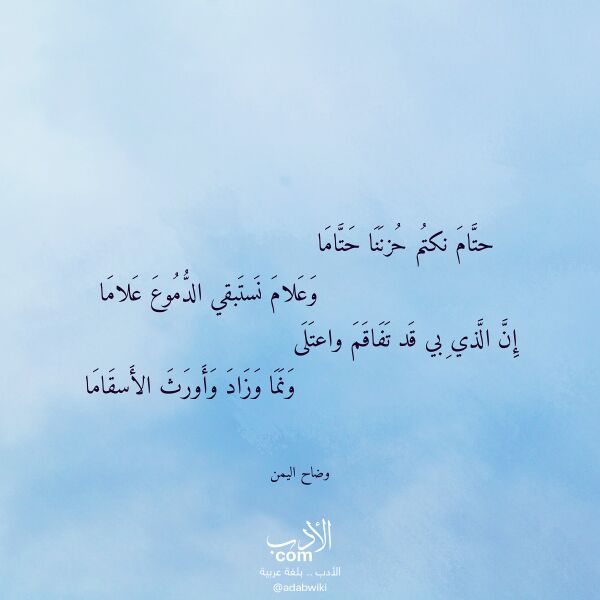 حتَّامَ نكتُم حُزنَنَا حَتَّامَا
وَعَلامَ نَستَبقي الدُّمُوعَ عَلامَا
إِنَّ الَّذي بِي قَد تَفَاقَمَ واعتَلَى
وَنَمَا وَزَادَ وَأَورَثَ الأَسقَامَا
وضاح اليمن
الأدب
com
الأدب .. بلغة عربية
@adabwiki